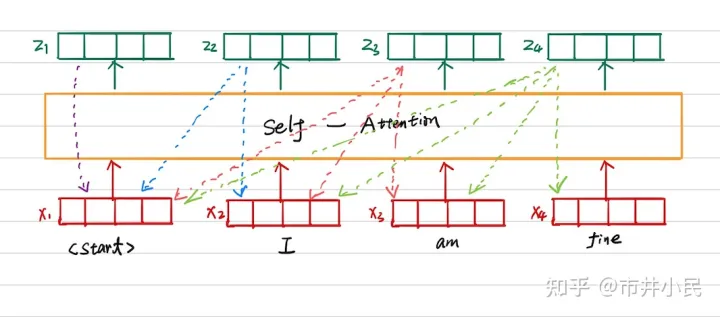 z1 z2 z3 z4
Self - Attention
x1 x2 x3 x4
<start> I am fine
知乎 @市井小民